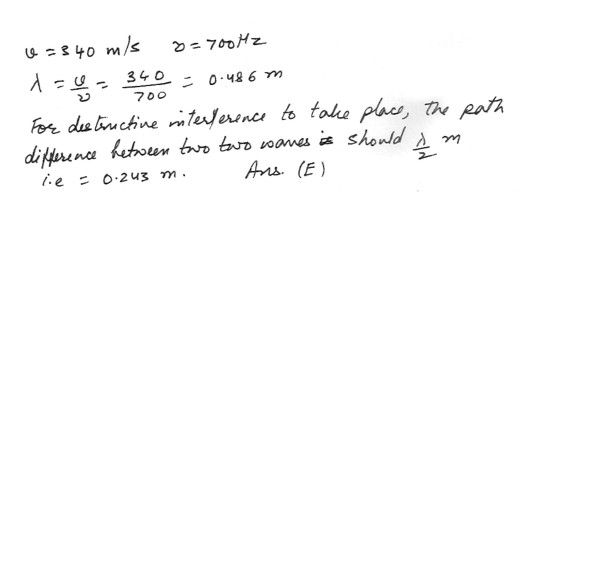 v = 340 m/s ν = 700 Hz
λ = v/ν = 340/700 = 0.486 m
For destructive interference to take place, the path
difference between two two waves is should λ/2 m
i.e = 0.243 m. Ans. (E)